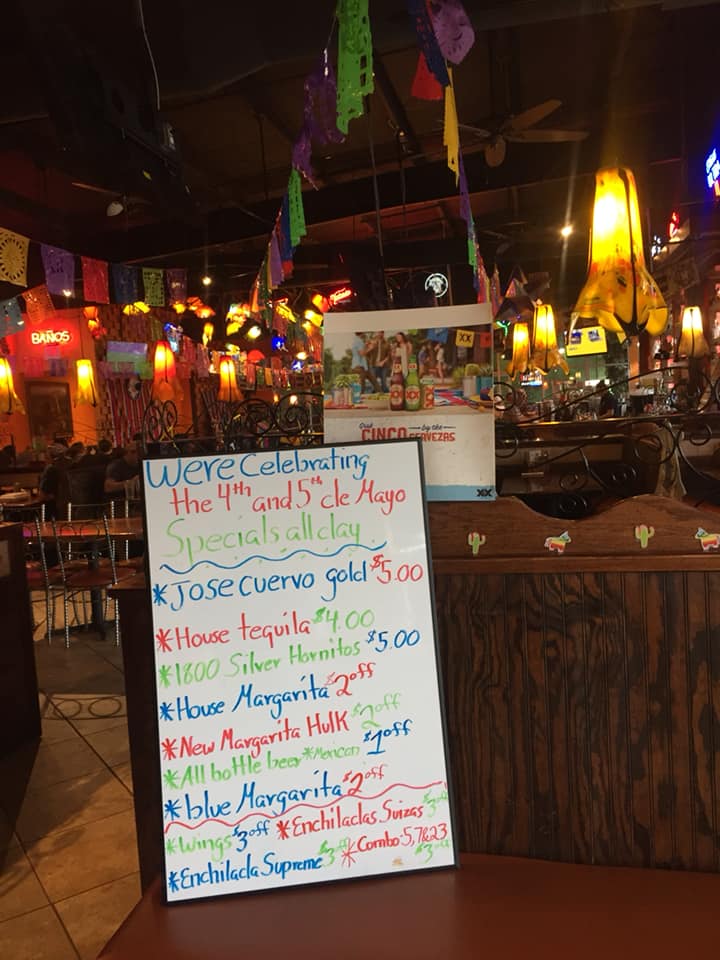 BAÑOS
XX
CINCO by the
CERVEZAS
XX
Were Celebrating
the 4th and 5th de Mayo
Specials all day
*Jose cuervo gold $5.00
*House tequila $4.00
*1800 Silver Hornitos $5.00
*House Margarita $2 off
*New Margarita Hulk $2 off
*All bottle beer *Mexican $1 off
*blue Margarita $2 off
*Wings $3 off *Enchiladas Suizas $3 off
*Enchilada Supreme $3 off *Combo: 5, 7 & 23 $3 off